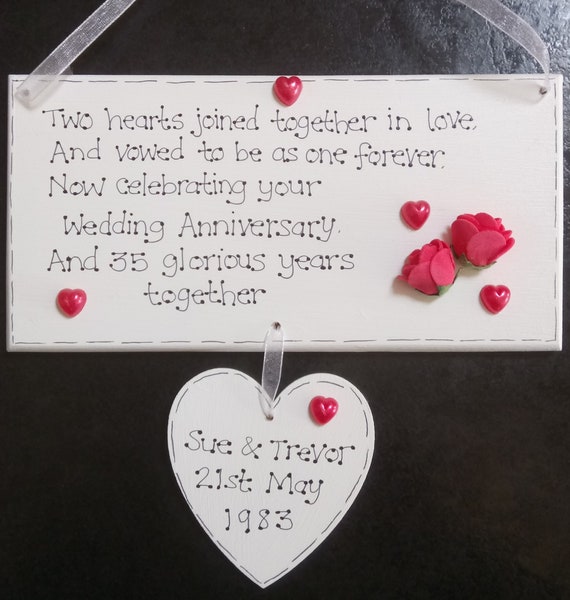 Two hearts joined together in love,
And vowed to be as one forever,
Now celebrating your
Wedding Anniversary,
And 35 glorious years
together
Sue & Trevor
21st May
1983